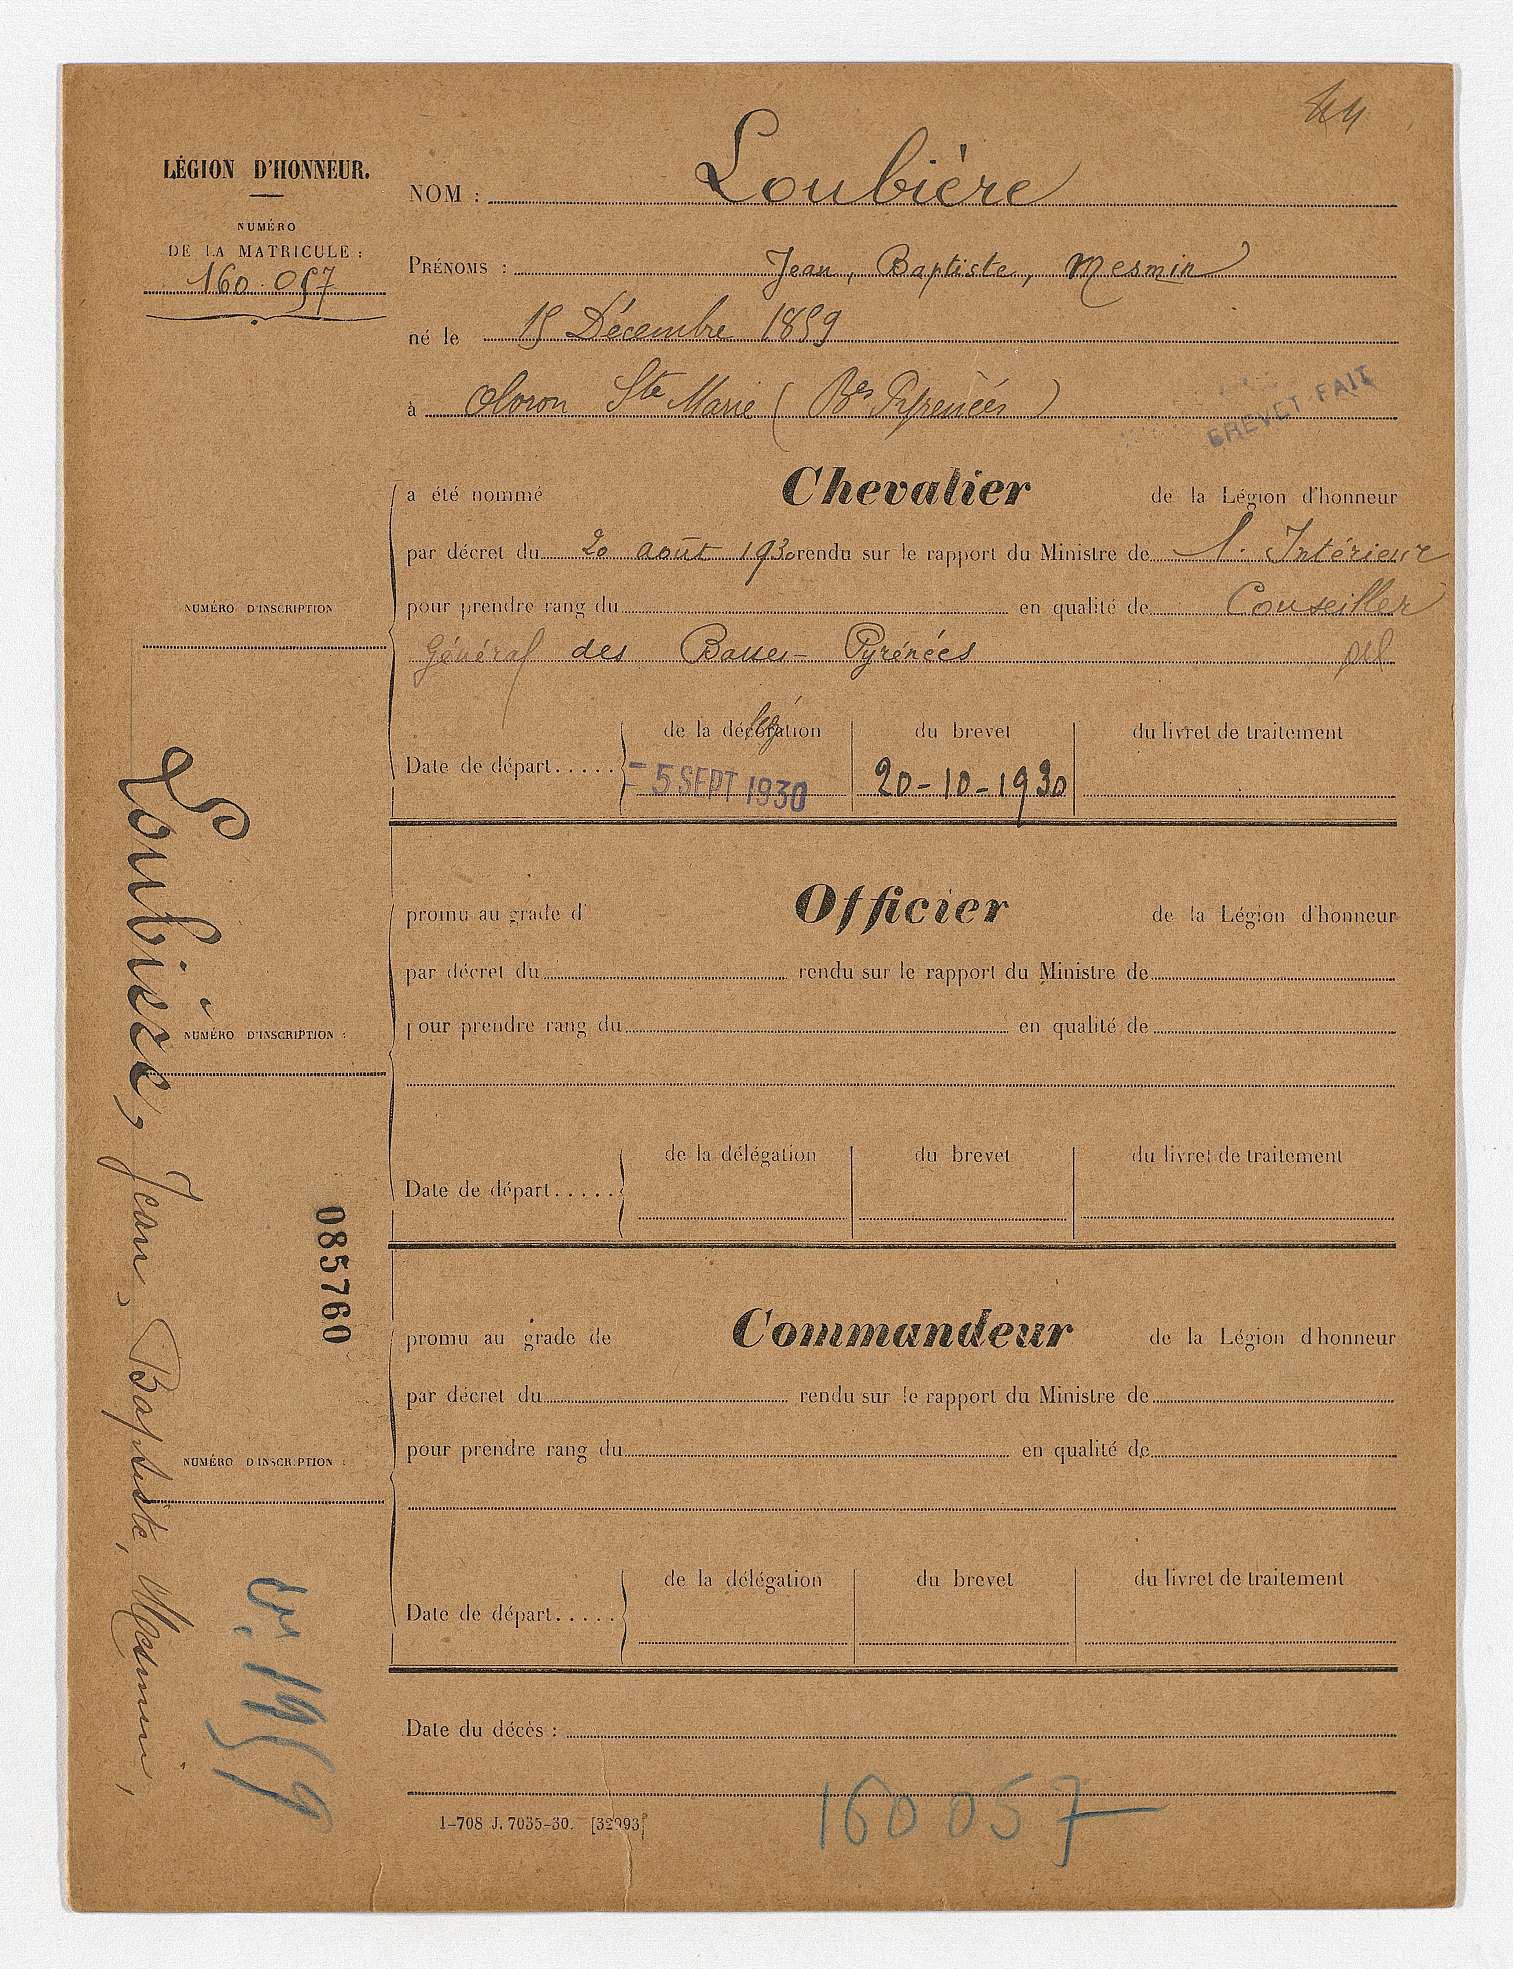 LÉGION D'HONNEUR.
NUMÉRO
DE LA MATRICULE :
160.057
NOM : Loubière
PRÉNOMS : Jean, Baptiste, Mesmin
né le 15 Décembre 1859
à Oloron Ste Marie (Bes Pyrénées)
BREVET FAIT
a été nommé Chevalier de la Légion d'honneur
par décret du 20 août 1930 rendu sur le rapport du Ministre de l'Intérieur
NUMÉRO D'INSCRIPTION
pour prendre rang du en qualité de Conseiller
Général des Basses-Pyrénées
de la décoration du brevet du livret de traitement
Date de départ.....
- 5 SEPT 1930 20-10-1930
promu au grade d' Officier de la Légion d'honneur
par décret du rendu sur le rapport du Ministre de
pour prendre rang du en qualité de
NUMÉRO D'INSCRIPTION :
de la délégation du brevet du livret de traitement
Date de départ.....
085760
promu au grade de Commandeur de la Légion d'honneur
par décret du rendu sur le rapport du Ministre de
pour prendre rang du en qualité de
NUMÉRO D'INSCRIPTION :
de la délégation du brevet du livret de traitement
Date de départ.....
Loubière, Jean, Baptiste, Mesmin,
Date du décès :
160057
1-708 J. 7035-30. [32993]